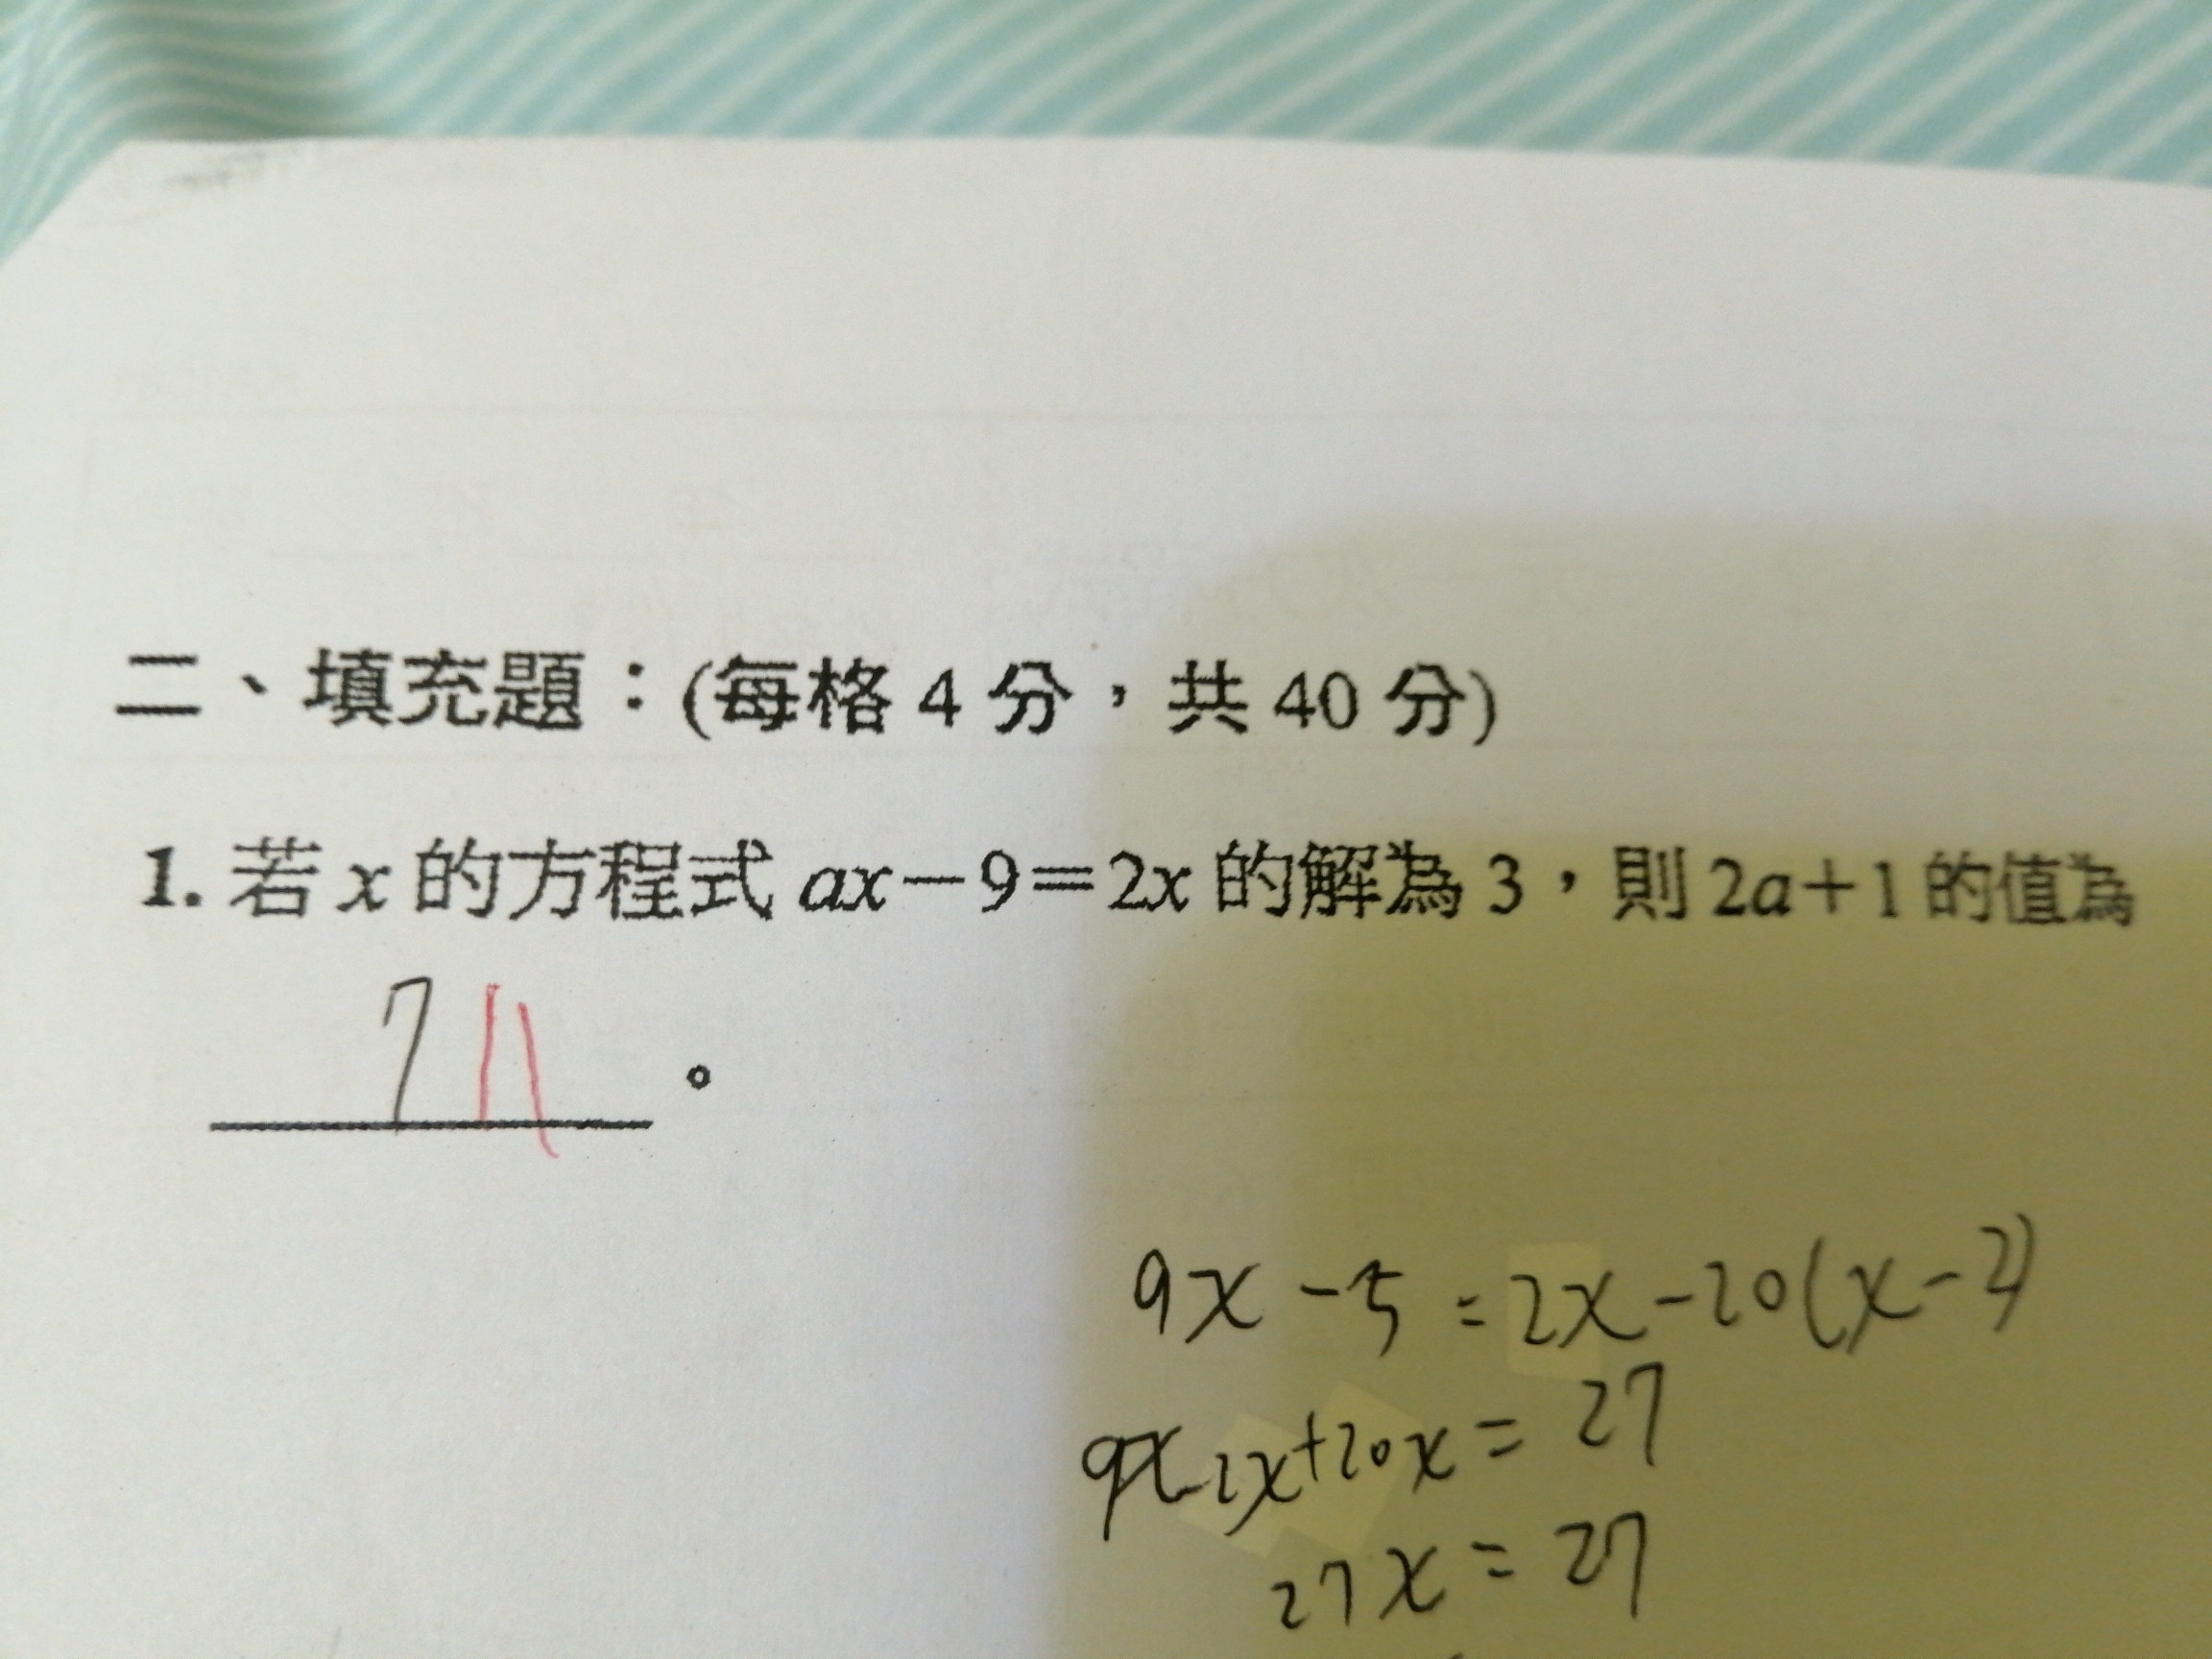 二、填充題：(每格 4 分，共 40 分)
1. 若 x 的方程式 ax－9＝2x 的解為 3，則 2a＋1 的值為
7 11 。
9x - 5 = 2x - 20(x - 2)
9x - 2x + 20x = 27
27x = 27